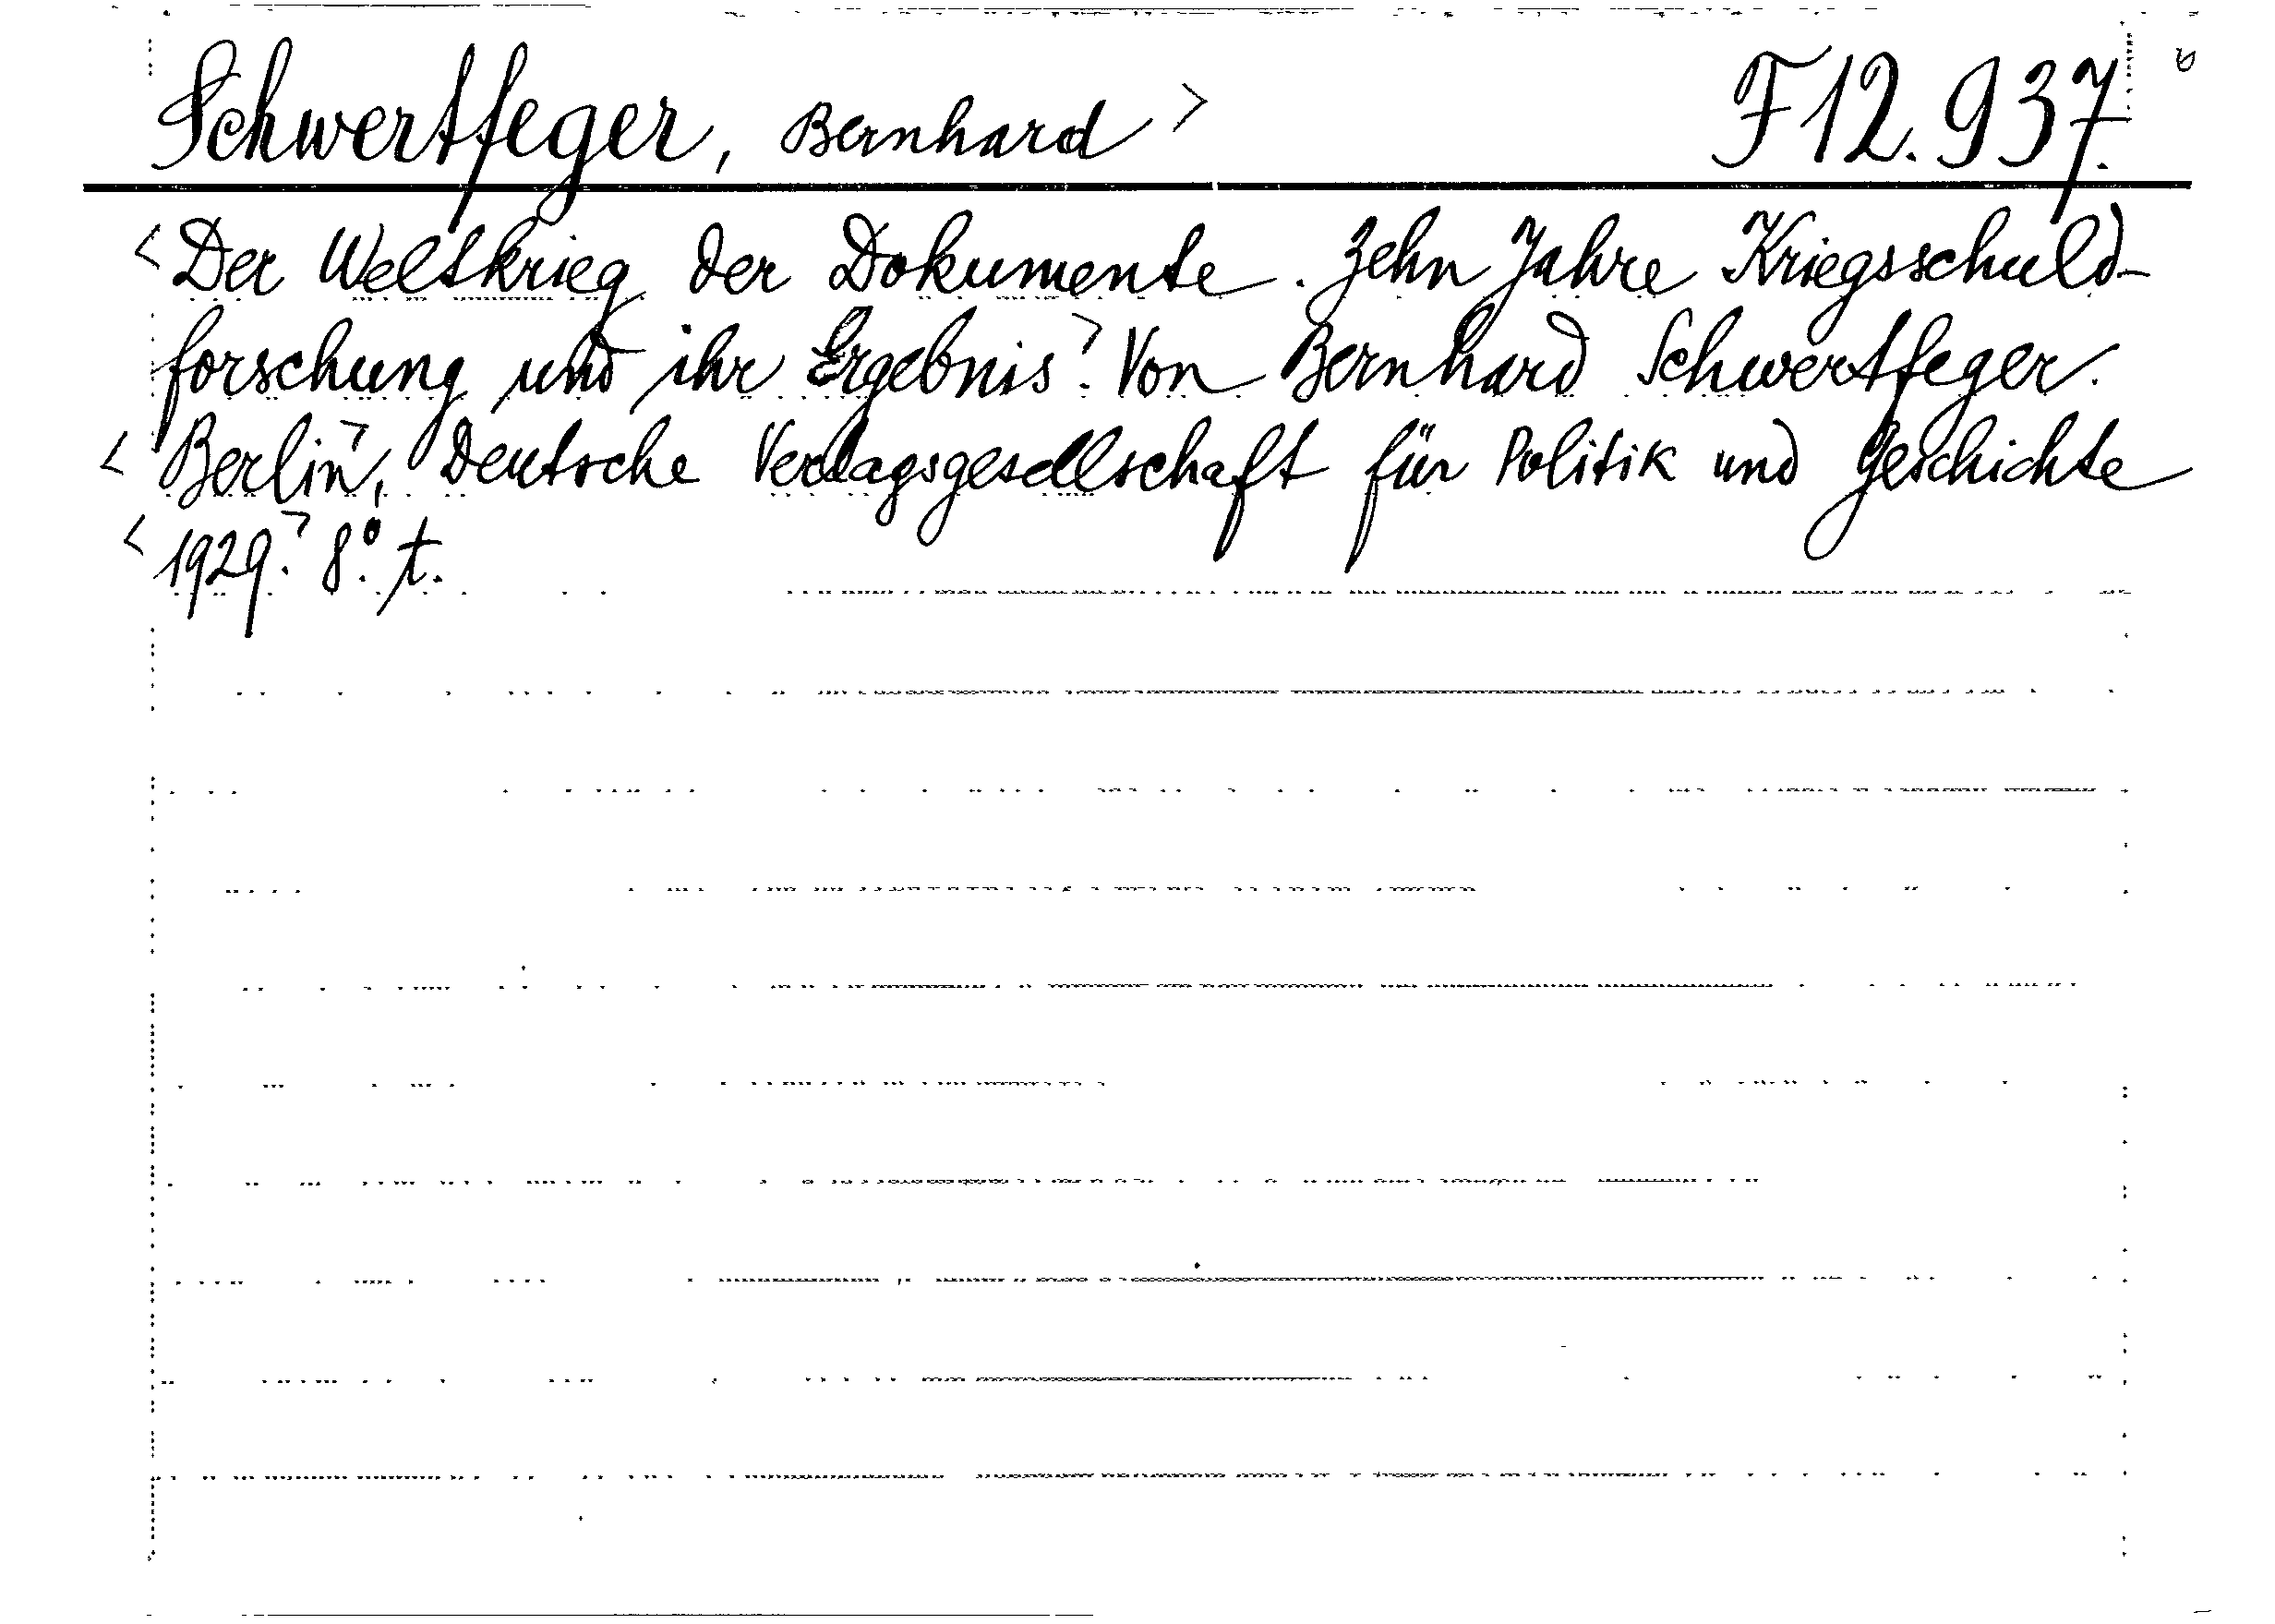 Schwertfeger, Bernhard > F12.937.
<Der Weltkrieg der Dokumente. Zehn Jahre Kriegsschuld-
forschung und ihr Ergebnis>. Von Bernhard Schwertfeger.
<Berlin>, Deutsche Verlagsgesellschaft für Politik und Geschichte
<1929>. 8°. t.